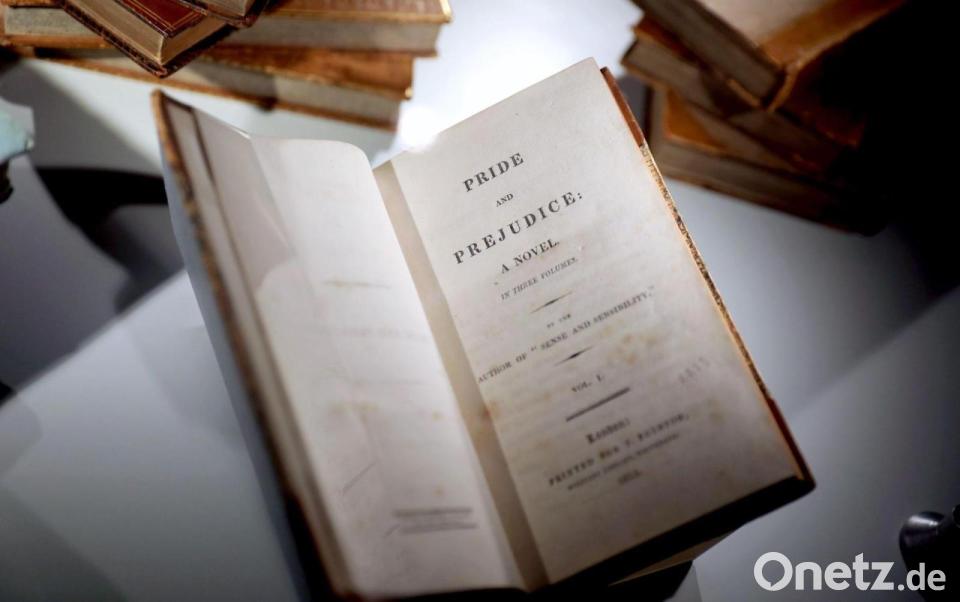 PRIDE
AND
PREJUDICE:
A NOVEL.
IN THREE VOLUMES.
BY THE
AUTHOR OF "SENSE AND SENSIBILITY."
VOL. I.
London:
PRINTED FOR T. EGERTON,
1813.
Onetz.de